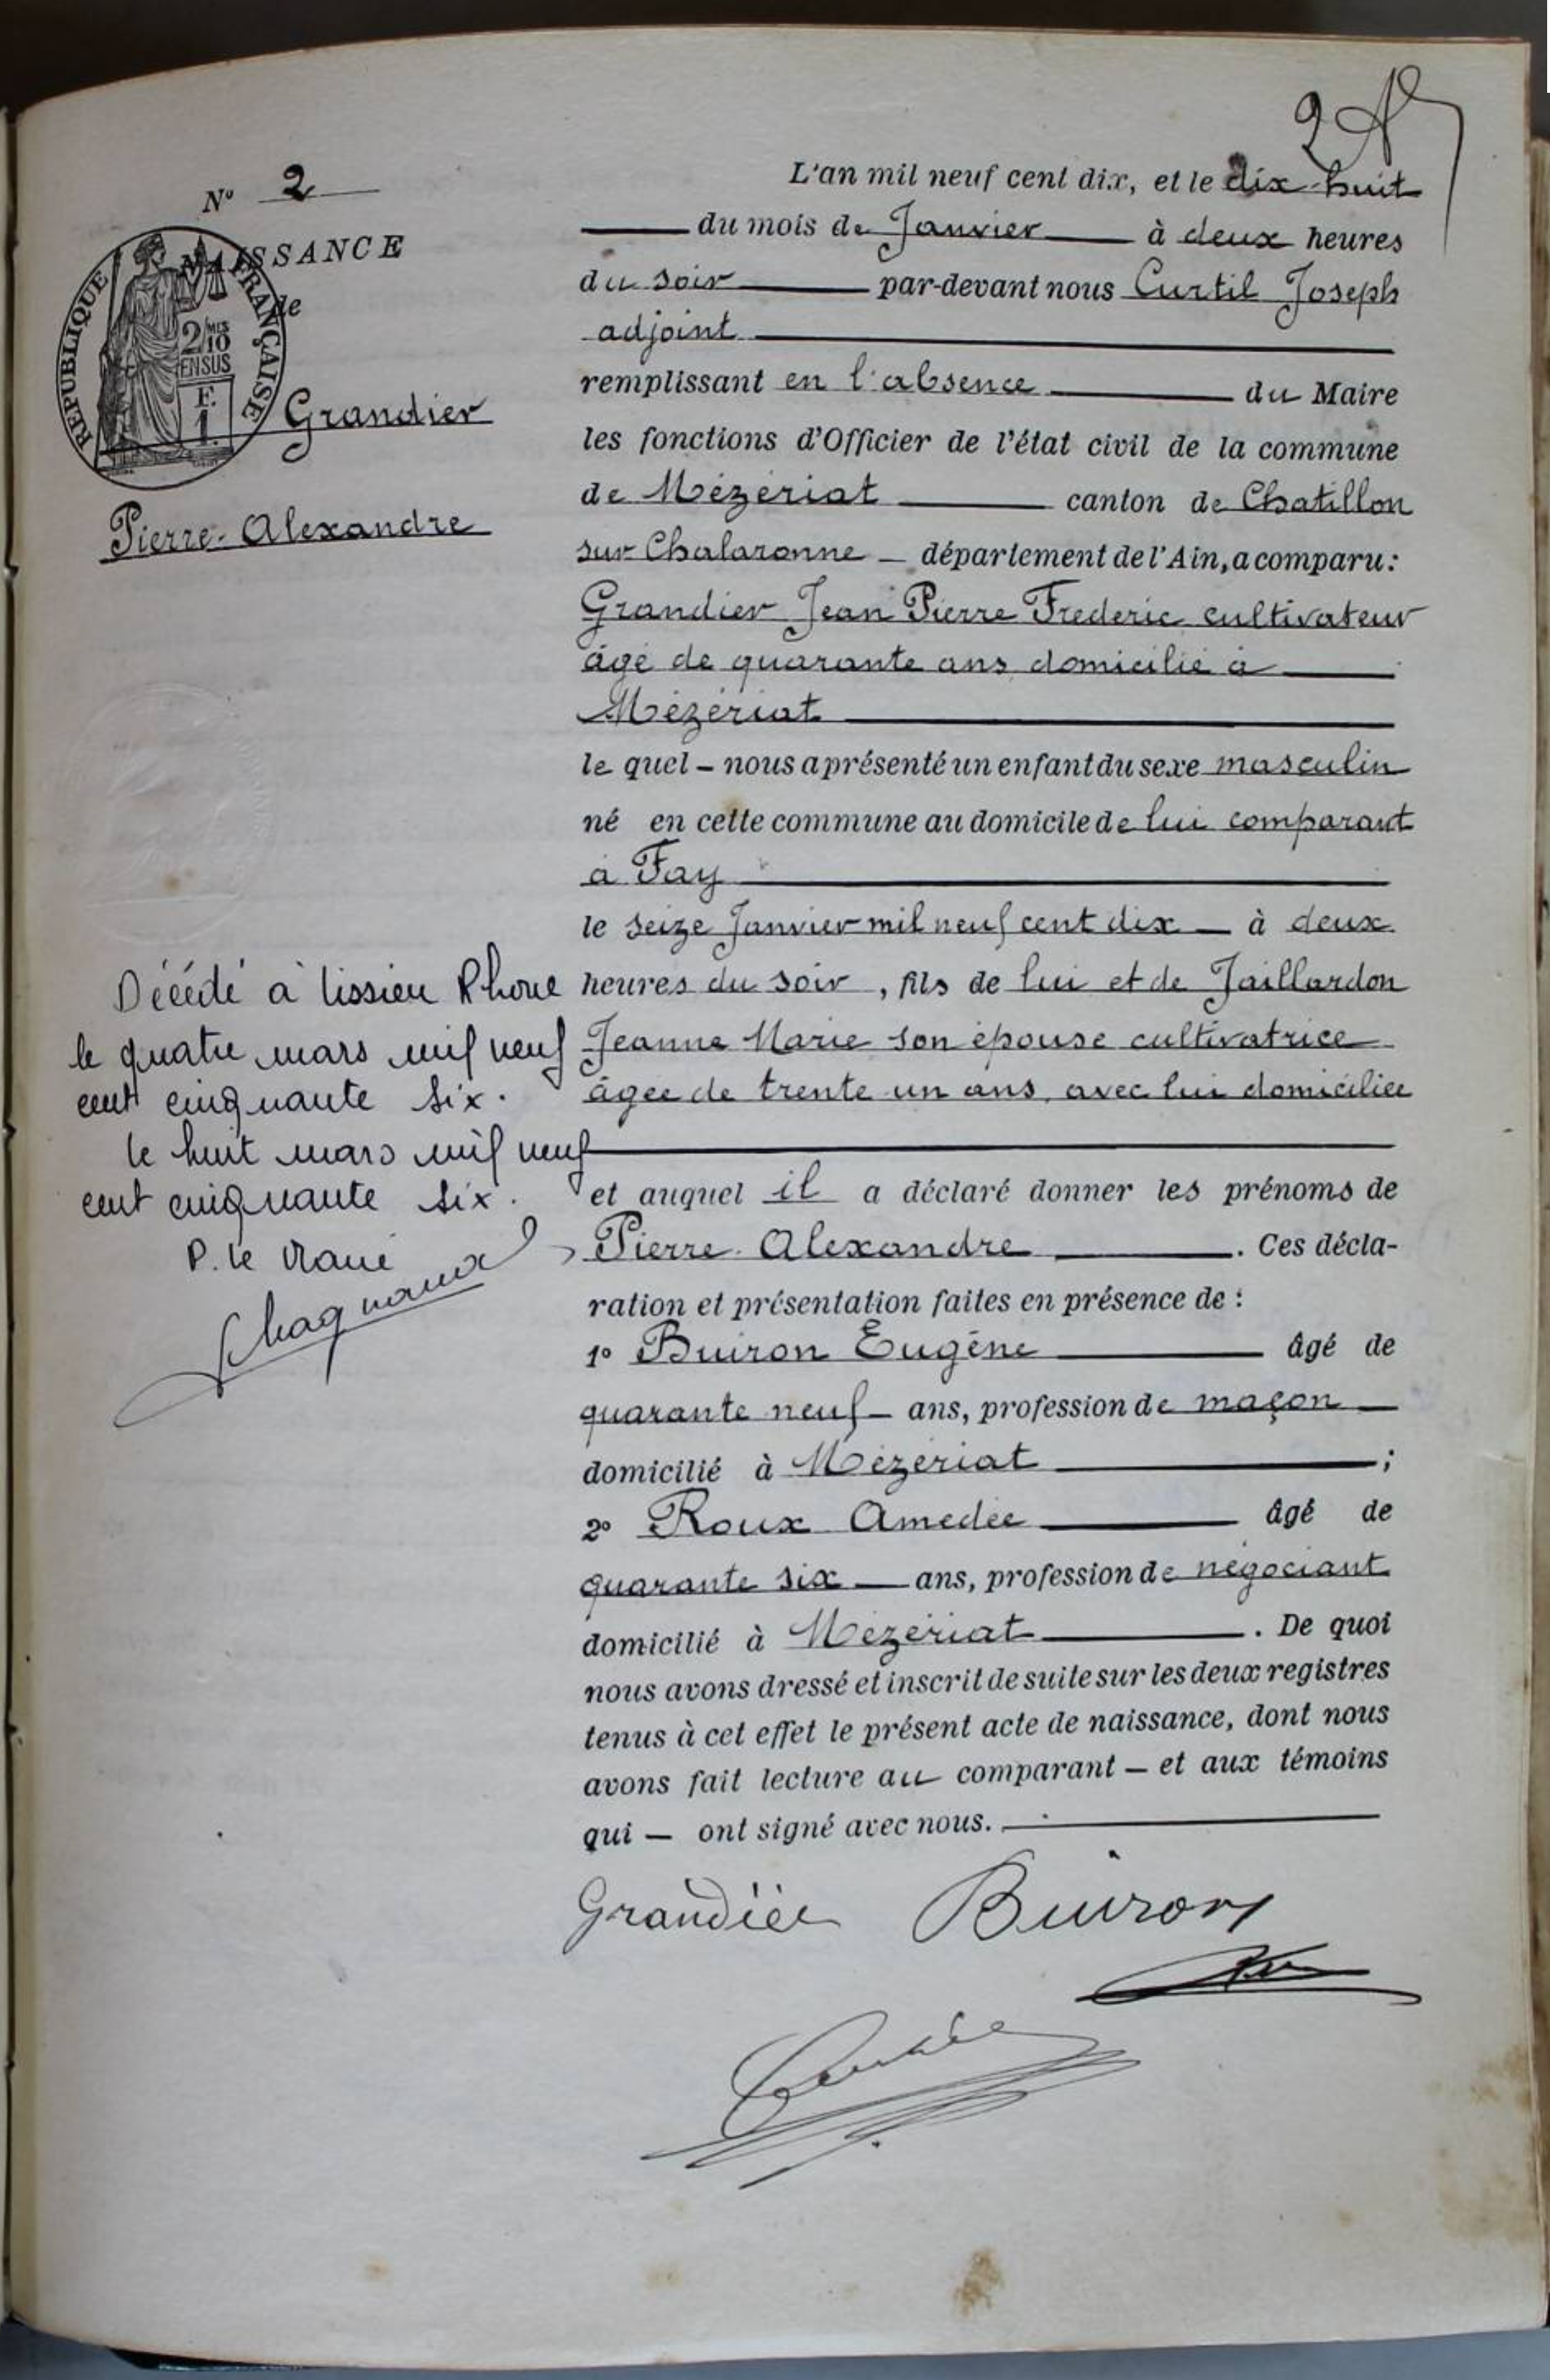 2
N° 2
NAISSANCE
de
RÉPUBLIQUE FRANÇAISE
2/10
EN SUS
F.
1.
Grandier
Pierre-Alexandre
L'an mil neuf cent dix, et le dix-huit
du mois de Janvier à deux heures
du soir par-devant nous Curtil Joseph
adjoint
remplissant en l'absence du Maire
les fonctions d'Officier de l'état civil de la commune
de Mézériat canton de Chatillon
sur Chalaronne – département de l'Ain, a comparu :
Grandier Jean Pierre Frederic cultivateur
âgé de quarante ans domicilié à
Mézériat
le quel – nous a présenté un enfant du sexe masculin
né en cette commune au domicile de lui comparant
à Fay
le seize Janvier mil neuf cent dix – à deux
heures du soir, fils de lui et de Jaillardon
Jeanne Marie son épouse cultivatrice
âgée de trente un ans, avec lui domiciliée
et auquel il a déclaré donner les prénoms de
Pierre-Alexandre. Ces décla-
ration et présentation faites en présence de :
1° Buiron Eugène âgé de
quarante neuf – ans, profession de maçon –
domicilié à Mézériat ;
2° Roux Amedée âgé de
quarante six – ans, profession de négociant
domicilié à Mézériat. De quoi
nous avons dressé et inscrit de suite sur les deux registres
tenus à cet effet le présent acte de naissance, dont nous
avons fait lecture au comparant – et aux témoins
qui – ont signé avec nous.
Décédé à Lissieu Rhone
le quatre mars mil neuf
cent cinquante six.
le huit mars mil neuf
cent cinquante six.
P. le Maire
Grandier Buiron